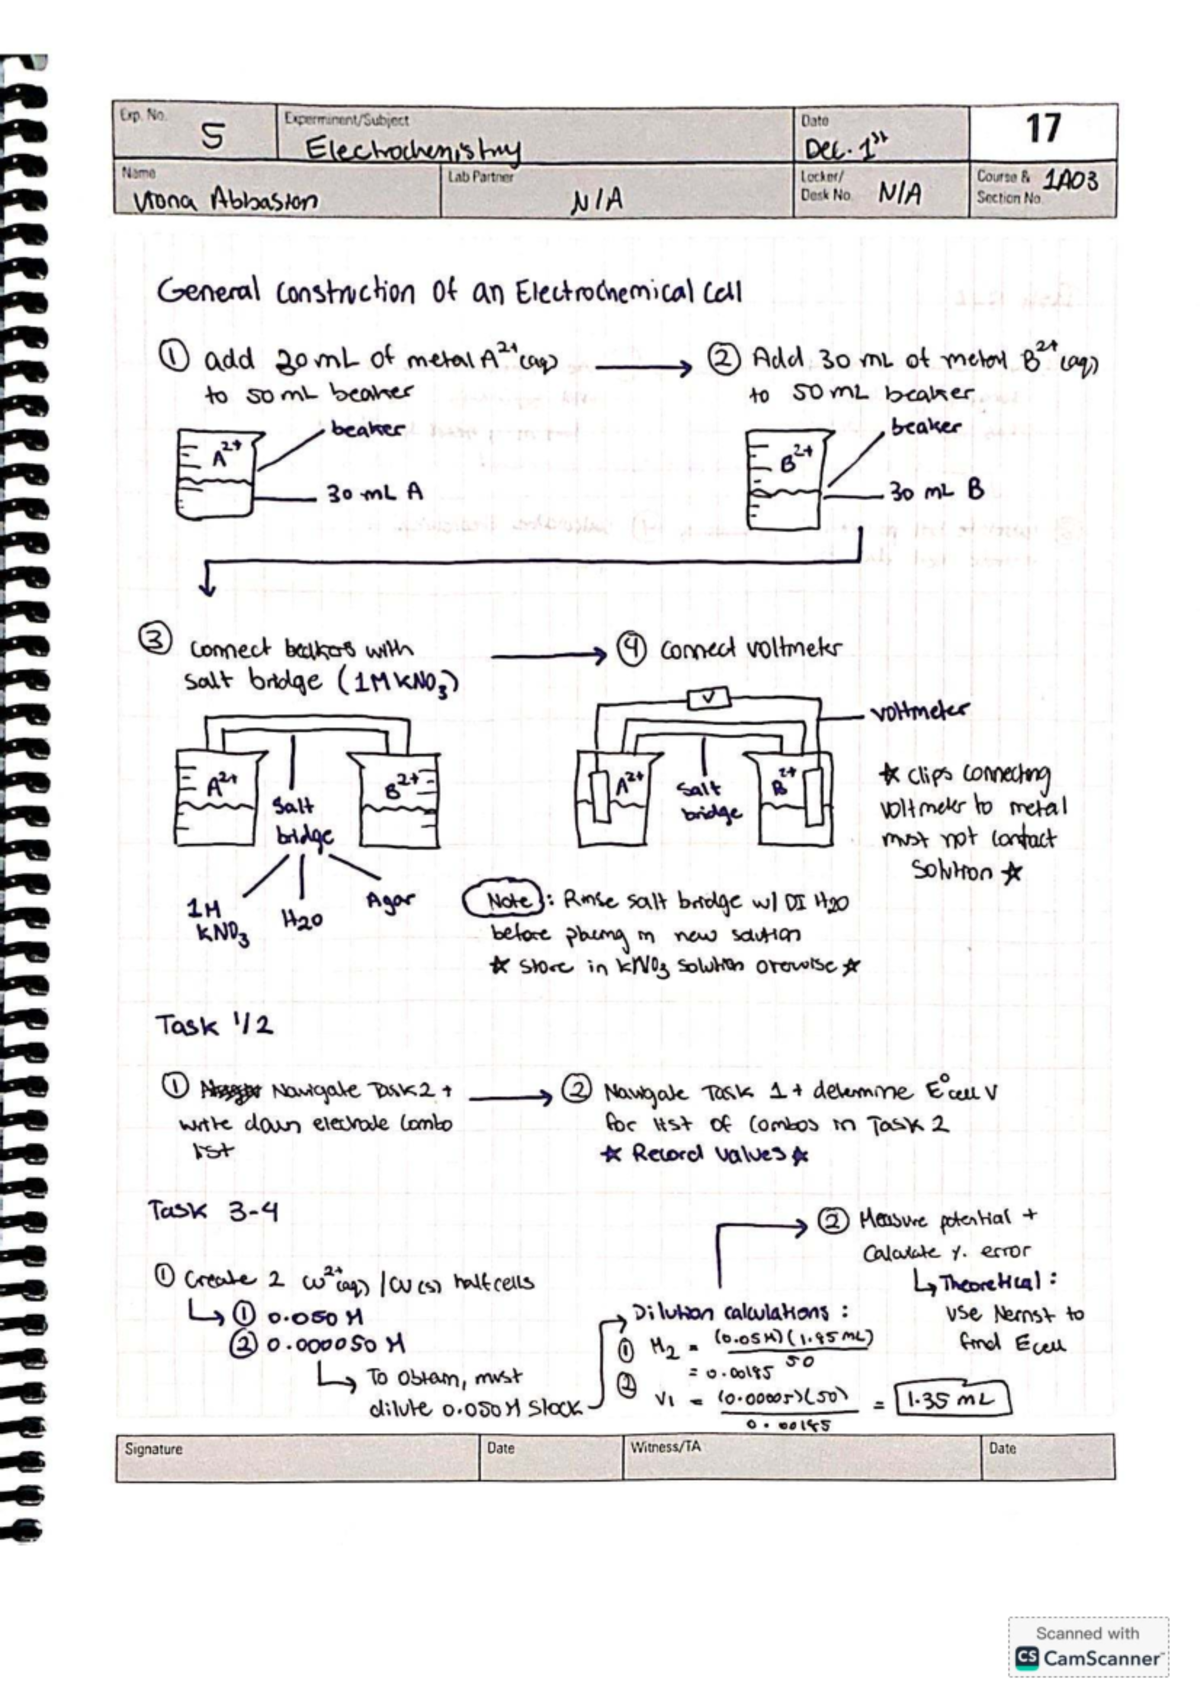 Exp. No. 5
Experminent/Subject Electrochemistry
Date Dec. 1st
17
Name Abbasion
Lab Partner N/A
Locker/ Desk No. N/A
Course & Section No. 1A03
General Construction Of an Electrochemical Cell
① add 30 mL of metal A2+(aq)
to 50 mL beaker
② Add 30 mL of metal B2+(aq)
to 50 mL beaker
A2+
beaker
30 mL A
B2+
beaker
30 mL B
③ Connect beakers with
Salt bridge (1M KNO3)
④ Connect voltmeter
A2+
B2+
Salt
bridge
1M
KNO3
H2O
Agar
V
voltmeter
A2+
B2+
Salt
bridge
☆ Clips connecting
voltmeter to metal
must not contact
Solution ☆
Note: Rinse salt bridge w/ DI H2O
before placing in new solution
☆ Store in KNO3 solution otherwise ☆
Task 1/2
① Navigate Task 2 +
write down electrode combo
list
② Navigate Task 1 + determine E°cell V
for list of Combos in Task 2
☆ Record values ☆
Task 3-4
① Create 2 Cu2+(aq) / Cu(s) half cells
① 0.050 M
② 0.000050 M
To obtain, must
dilute 0.050 M stock
Dilution calculations:
① M2 = (0.05M)(1.85 mL)
50
= 0.00185
② V1 = (0.00005)(50)
0.00185
= 1.35 mL
② Measure potential +
Calculate % error
Theoretical:
Use Nernst to
find Ecell
Signature
Date
Witness/TA
Date
Scanned with
CS CamScanner